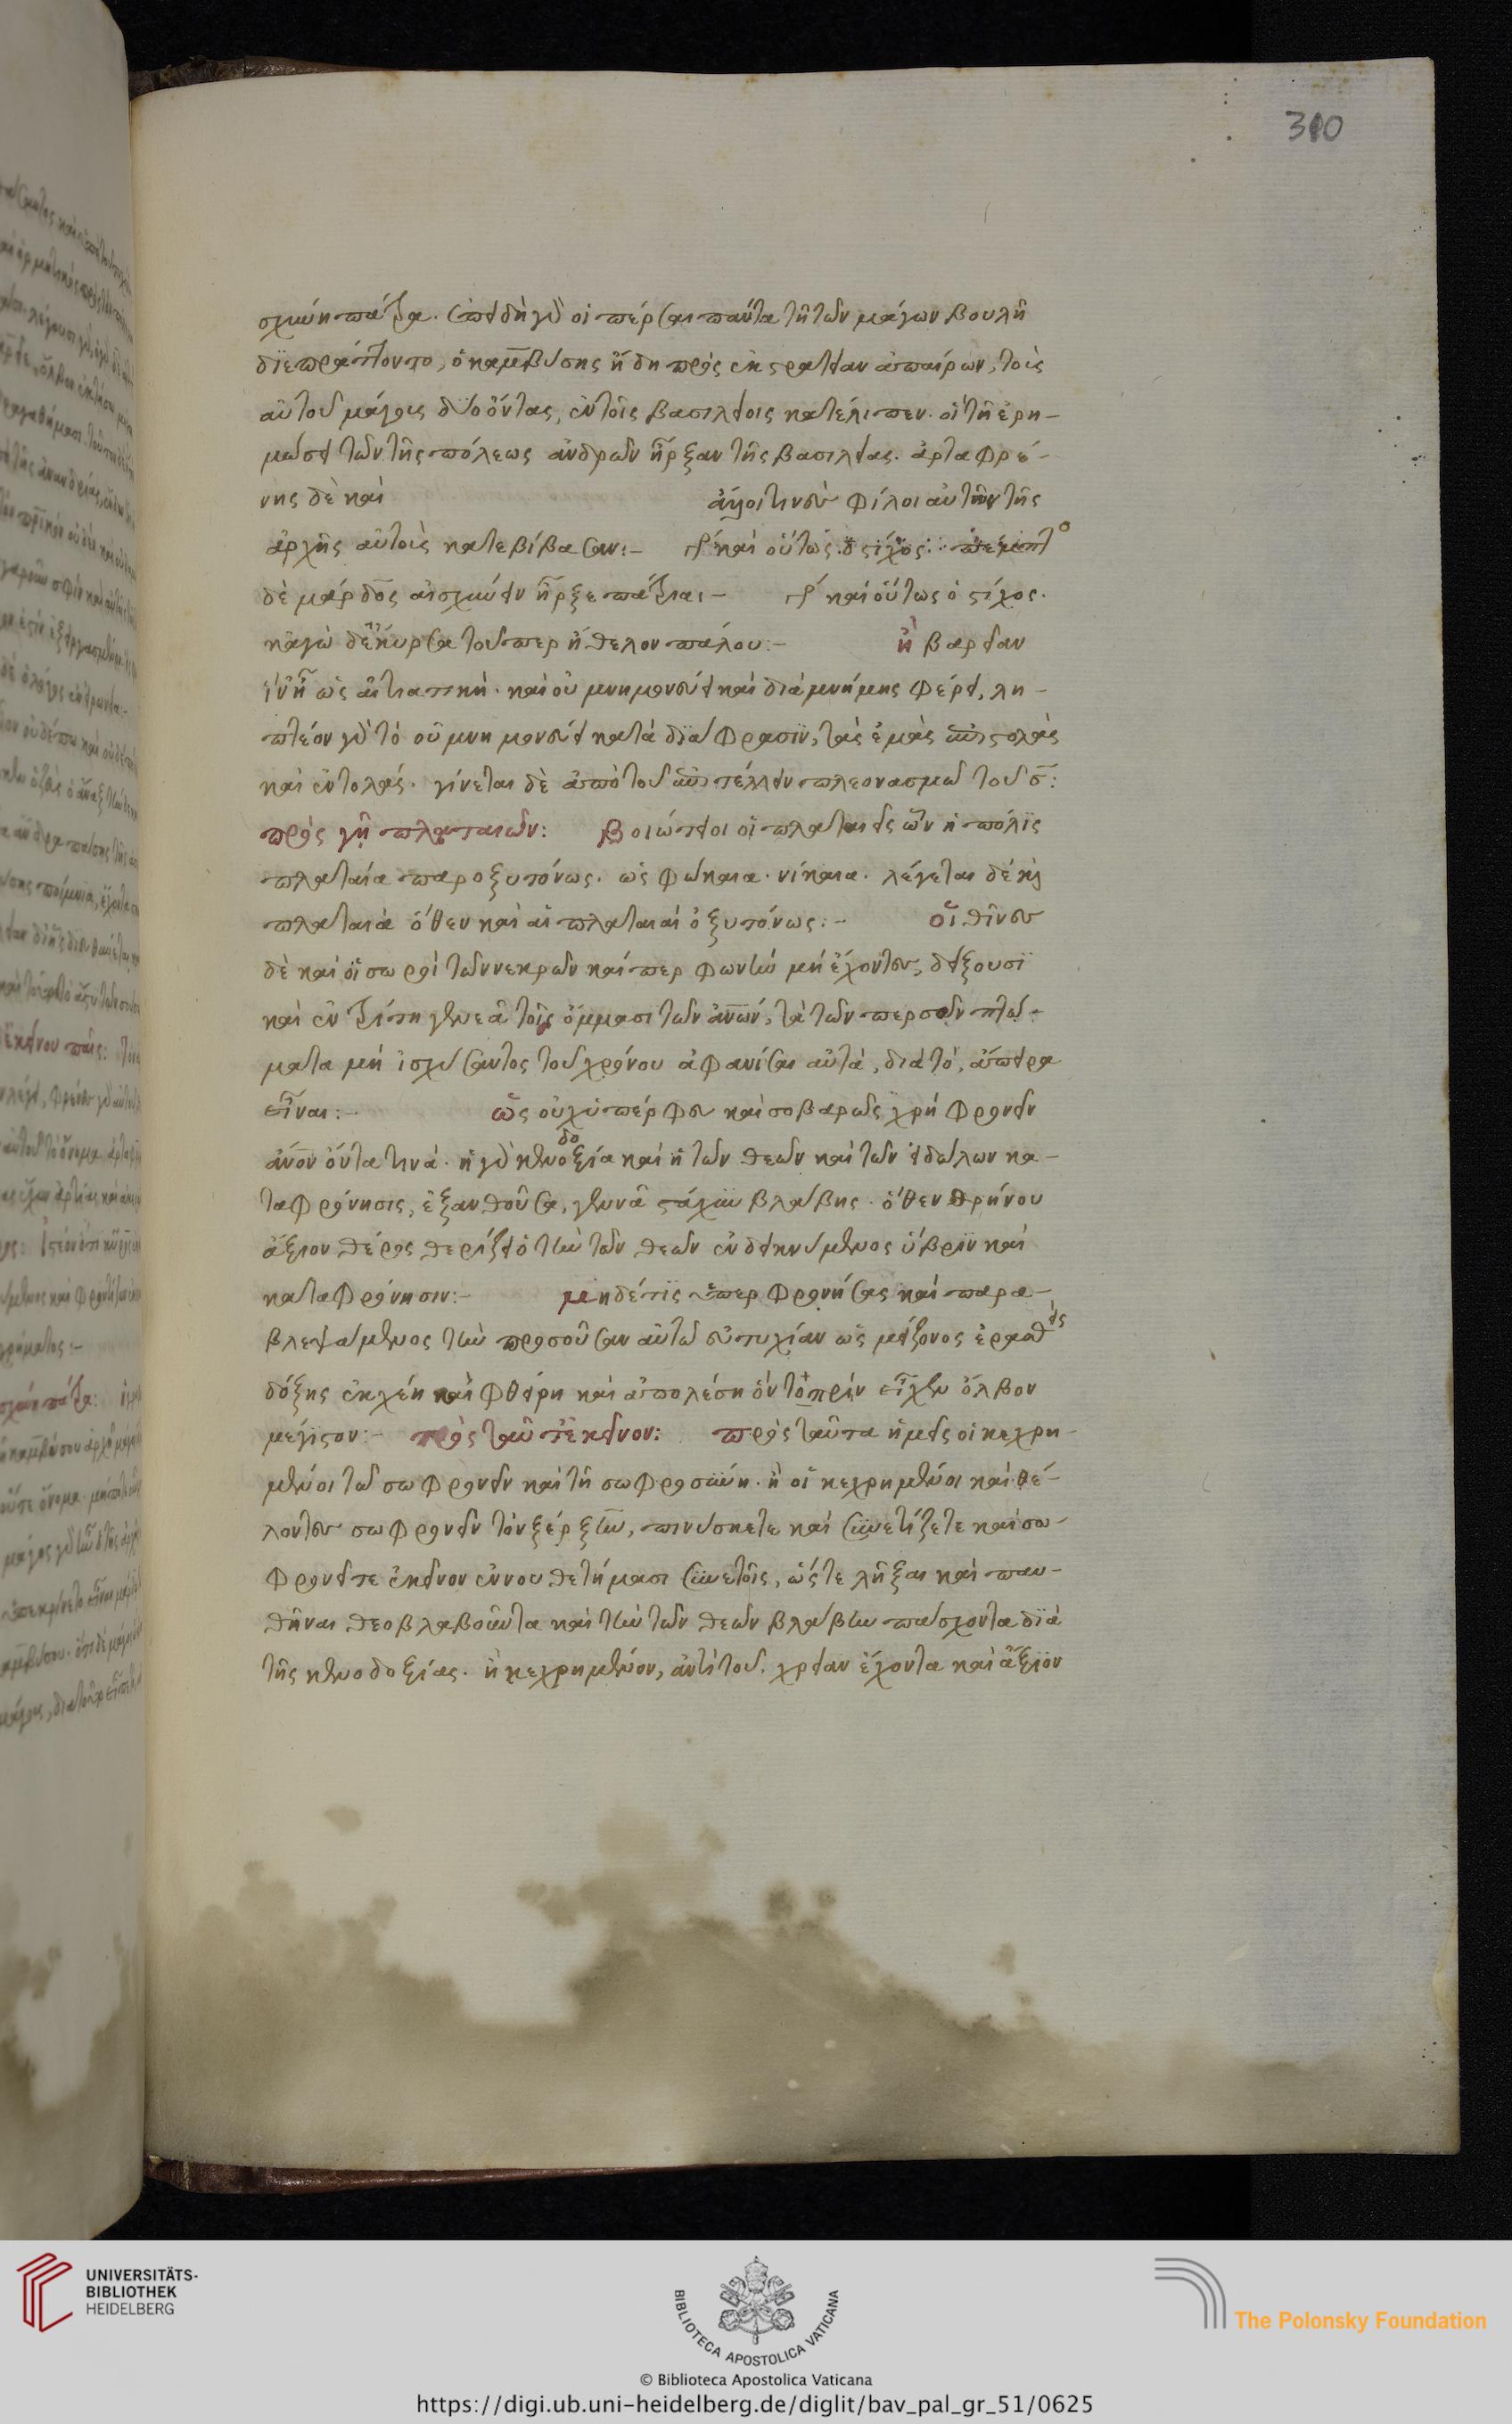 310
σχύνη πάτρα. ἐπεὶ δὴ γὰρ οἱ πέρσαι πάντα τῆ τῶν μάγων βουλῆ
διεπράττοντο, ὁ καμβύσης ἤδη πρὸς ἐκστρατείαν ἀπαίρων, τοὺς
αὐτοῦ μάγους δύο ὄντας, ἐν τοῖς βασιλείοις κατέλιπεν. οἳ τῆ ἐρη-
μώσει τῶν τῆς πόλεως ἀνδρῶν ἦρξαν τῆς βασιλείας. ἀρταφρέ-
νης δὲ καὶ ἄλλοι τινὲς φίλοι αὐτῶν τῆς
ἀρχῆς αὐτοὺς κατεβίβασαν:- γρ. καὶ οὕτως ὁ στίχος: πέμπτο
δὲ μάρδος αἰσχύνειν ἦρξε πάτρας- γρ. καὶ οὕτως ὁ στίχος.
κἀγὼ δὲ ἔκυρσα τοῦπερ ἤθελον πάλου:- ἢ βαρεῖαν
ἵν' ἦ ὡς αἰτιατική. καὶ οὐ μνημονεύει καὶ διὰ μνήμης φέρει, λη-
πτέον γὰρ τὸ οὐ μνημονεύει κατὰ διάφρασιν, τὰς ἐμὰς ἐπιστολὰς
καὶ ἐντολάς. γίνεται δὲ ἀπὸ τοῦ ἐπιτέλλειν πλεονασμῶ τοῦ σ:
πρὸς γῆ πλαταιῶν: βοιώτειοι οἱ πλαταιεῖς ὧν ἡ πόλις
πλαταία παροξυτόνως. ὡς φώκαια. νίκαια. λέγεται δὲ καὶ
πλαταιὰ ὅθεν καὶ αἱ πλαταιαὶ ὀξυτόνως:- οἱ θῖνες
δὲ καὶ οἱ σωροὶ τῶν νεκρῶν καίπερ φωνὴν μὴ ἔχοντες, δείξουσι
καὶ ἐν τρίτη γενεᾶ τοῖς ὄμμασι τῶν ἀνων, τὰ τῶν περσῶν πτώ-
ματα μὴ ἰσχύσαντος τοῦ χρόνου ἀφανίσαι αὐτὰ, διὰ τὸ, ἄπειρα
εἶναι:- ὡς οὐχ ὑπέρφευ καὶ σοβαρῶς χρὴ φρονεῖν
ἀνον ὄντα τινά. ἡ γὰρ κενοδοξία καὶ ἡ τῶν θεῶν καὶ τῶν εἰδώλων κα-
ταφρόνησις, ἐξανθοῦσα, γεννᾶ στάχυν βλάβης. ὅθεν θρήνου
ἄξιον θέρος θερίζει ὁ τὴν τῶν θεῶν ἐνδεικνύμενος ὕβριν καὶ
καταφρόνησιν:- μηδέ τις ὑπερφρονήσας καὶ παρα-
βλεψάμενος τὴν προσοῦσαν αὐτῶ εὐτυχίαν ὡς μείζονος ἐρασθεὶς
δόξης ἐκχέη καὶ φθείρη καὶ ἀπολέση ὅν το πρὶν εἶχεν ὄλβον
μέγιστον:- πρὸς ταῦτ' ἐκεῖνον: πρὸς ταῦτα ἡμεῖς οἱ κεχρη-
μένοι τῶ σωφρονεῖν καὶ τῆ σωφροσύνη. ἢ οἱ κεχρημένοι καὶ θέ-
λοντες σωφρονεῖν τὸν ξέρξην, πινύσκετε καὶ συνετίζετε καὶ σω-
φρονεῖτε ἐκεῖνον ἐν νουθετήμασι συνετοῖς, ὥστε λῆξαι καὶ παυ-
θῆναι θεοβλαβοῦντα καὶ τὴν τῶν θεῶν βλάβην πάσχοντα διὰ
τῆς κενοδοξίας. ἢ κεχρημένον, ἀντὶ τοῦ. χρείαν ἔχοντα καὶ ἄξιον
UNIVERSITÄTS-
BIBLIOTHEK
HEIDELBERG
BIBLIOTECA APOSTOLICA VATICANA
The Polonsky Foundation
© Biblioteca Apostolica Vaticana
https://digi.ub.uni-heidelberg.de/diglit/bav_pal_gr_51/0625